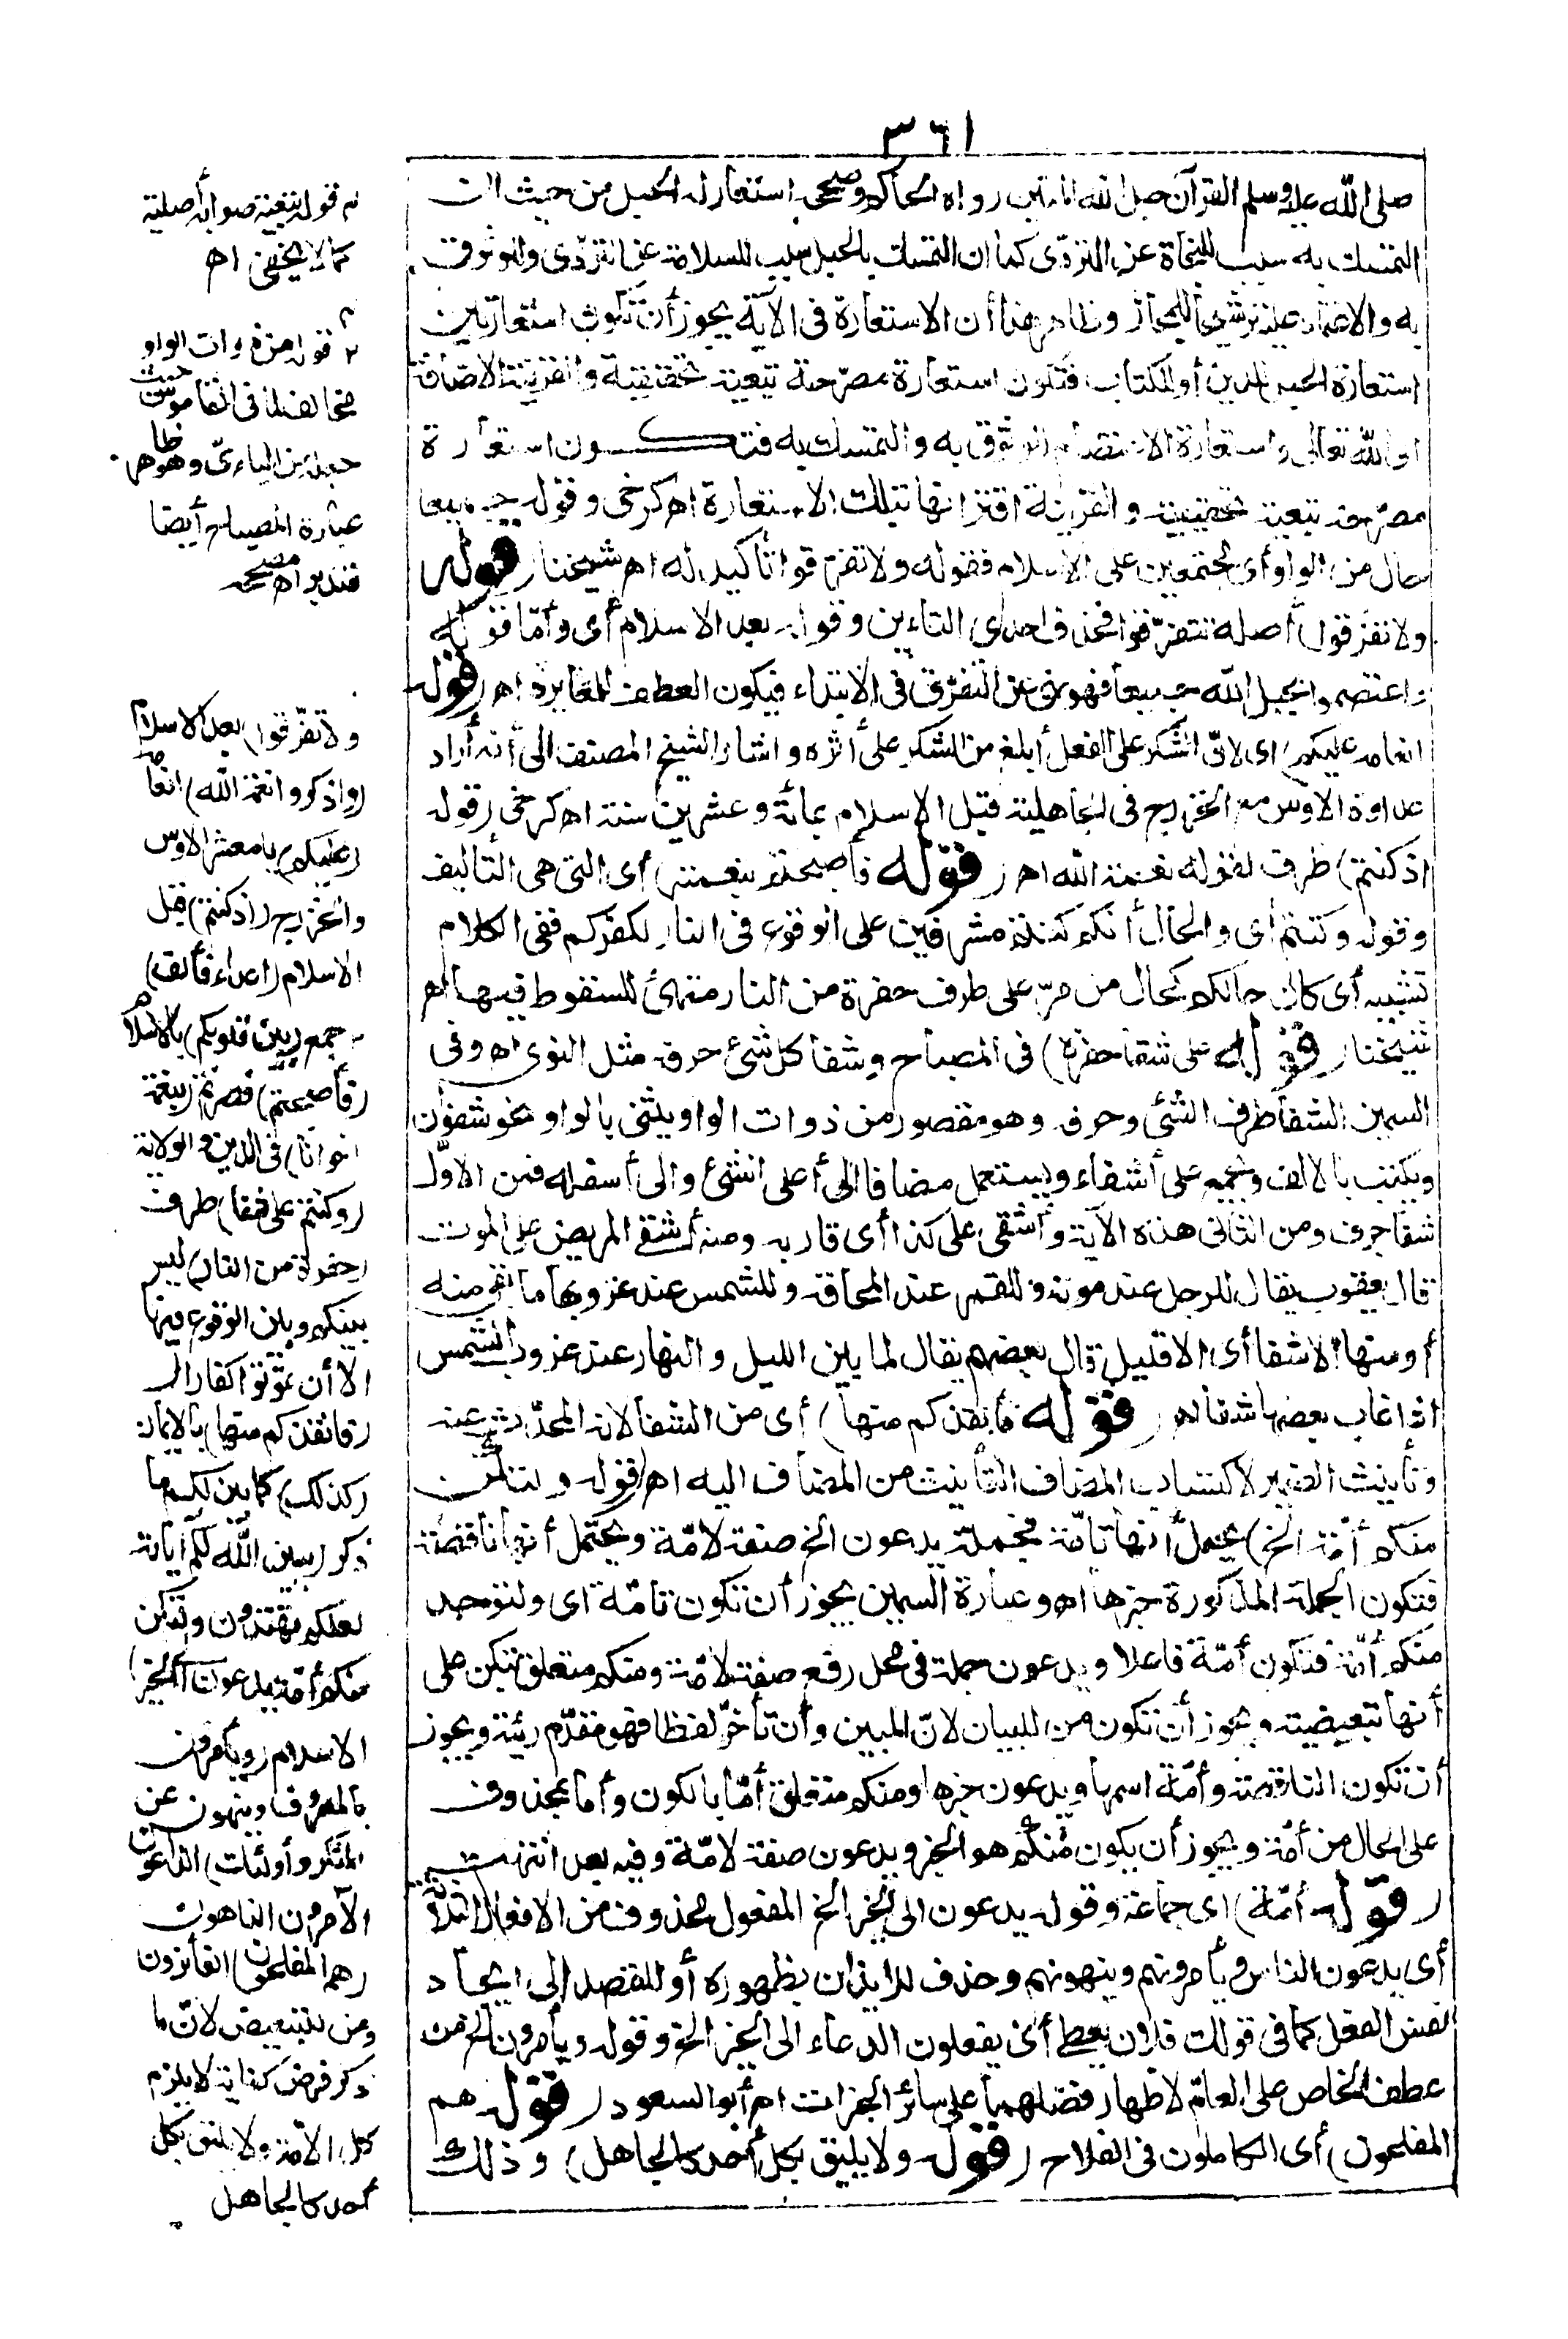 ٣٦١
صلى الله عليه وسلم القرآن حبل الله المتين رواه الحاكم وصححه استعار له الحبل من حيث ان
التمسك به سبب للنجاة عن التردّى كما ان التمسك بالحبل سبب للسلامة عن التردّى والوثوق
به والاعتماد عليه ترشيحا للمجاز وظاهر هذا أن الاستعارة فى الآية يجوز أن تكون استعارتين
استعارة الحبل للدين أو للكتاب فتكون استعارة مصرّحة تبعية تحقيقية والقرينة الاضافة
الى الله تعالى واستعارة الاعتصام للوثوق به والتمسك به فتكون استعارة
مصرّحة تبعية تحقيقية والقرينة اقترانها بتلك الاستعارة اه كرخى وقوله جميعا
حال من الواو أى مجتمعين على الاسلام فقوله ولا تفرّقوا تأكيد له اه شيخنا (قوله
ولا تفرّقوا) أصله تتفرّقوا فحذف احدى التاءين وقوله بعد الاسلام أى وأمّا قوله
واعتصموا بحبل الله جميعا فهو نهى عن التفرّق فى الابتداء فيكون العطف للمغايرة اه (قوله
انعامه عليكم) اى لانّ الشكر على الفعل أبلغ من الشكر على أثره واشار الشيخ المصنف الى أنه أراد
عداوة الاوس مع الخزرج فى الجاهلية قبل الاسلام بمائة وعشرين سنة اه كرخى (قوله
اذ كنتم) ظرف لقوله نعمة الله اه (قوله فأصبحتم بنعمته) أى التى هى التأليف
وقوله وكنتم أى والحال أنكم كنتم مشرفين على الوقوع فى النار لكفركم ففى الكلام
تشبيه أى كان حالكم كحال من مرّ على طرف حفرة من النار متهيئ للسقوط فيها اه
شيخنا (قوله على شفا حفرة) فى المصباح وشفا كل شئ حرفه مثل النوى اه وفى
السمين الشفا طرف الشئ وحرفه وهو مقصور من ذوات الواو يثنى بالواو نحو شفوان
ويكتب بالالف ويجمع على أشفاء ويستعمل مضافا الى أعلى الشئ والى أسفله فمن الاوّل
شفا جرف ومن الثانى هذه الآية وأشفى على كذا أى قاربه ومنه أشفى المريض على الموت
قال يعقوب يقال للرجل عند موته وللقمر عند المحاق وللشمس عند غروبها ما بقى منه
أو منها الا شفا أى الا قليل قال بعضهم يقال لما بين الليل والنهار عند غروب الشمس
اذا غاب بعضها شفا اه (قوله فأنقذكم منها) أى من الشفا لانه المحدّث عنه
وتأنيث الضمير لاكتساب المضاف التأنيث من المضاف اليه اه (قوله ولتكن
منكم أمّة الخ) يحتمل أنها تامّة فجملة يدعون الخ صفة لامّة ويحتمل أنها ناقصة
فتكون الجملة المذكورة خبرها اه وعبارة السمين يجوز أن تكون تامّة اى ولتوجد
منكم أمّة فتكون أمّة فاعلا ويدعون جملة فى محل رفع صفة لامّة ومنكم متعلق بتكن على
أنها تبعيضية ويجوز أن تكون من للبيان لانّ المبين وأن تأخّر لفظا فهو مقدّم رتبة ويجوز
أن تكون الناقصة وأمّة اسمها ويدعون خبرها ومنكم متعلق أمّا بالكون وأما بمحذوف
على الحال من أمّة ويجوز أن يكون منكم هو الخبر ويدعون صفة لامّة وفيه بعد انتهت
(قوله أمّة) اى جماعة وقوله يدعون الى الخير الخ المفعول محذوف من الافعال الثلاثة
أى يدعون الناس ويأمرونهم وينهونهم وحذف للايذان بظهوره أو للقصد الى ايجاد
نفس الفعل كما فى قولك فلان يعطى أى يفعلون الدعاء الى الخير الخ وقوله ويأمرون الخ من
عطف الخاص على العامّ لاظهار فضلهما على سائر الخيرات اه أبو السعود (قوله هم
المفلحون) أى الكاملون فى الفلاح (قوله ولا يليق بكل أحد كالجاهل) وذلك
قوله تبعية صوابه أصلية
كما لا يخفى اه
٢ قوله من ذوات الواو
مخالف لما فى القاموس حيث
جعله من اليائىّ وهو ظاهر
عبارة المصباح أيضا
فتدبر اه مصححه
ولا تفرّقوا) بعد الاسلام
(واذكروا نعمة الله) انعامه
(عليكم) يا معشر الاوس
والخزرج (اذ كنتم) قبل
الاسلام (اعداء فألف)
جمع (بين قلوبكم) بالاسلام
(فأصبحتم) فصرتم (بنعمته
اخوانا) فى الدين والولاية
(وكنتم على شفا) طرف
(حفرة من النار) ليس
بينكم وبين الوقوع فيها
الا أن تموتوا كفارا
(فأنقذكم منها) بالايمان
(كذلك) كما بين لكم ما
ذكر (يبين الله لكم آياته
لعلكم تهتدون ولتكن
منكم أمّة يدعون الى الخير)
الاسلام (ويأمرون
بالمعروف وينهون عن
المنكر وأولئك) الداعون
الآمرون الناهون
(هم المفلحون) الفائزون
ومن للتبعيض لانّ ما
ذكر فرض كفاية لا يلزم
كل الامّة ولا يليق بكل
أحد كالجاهل